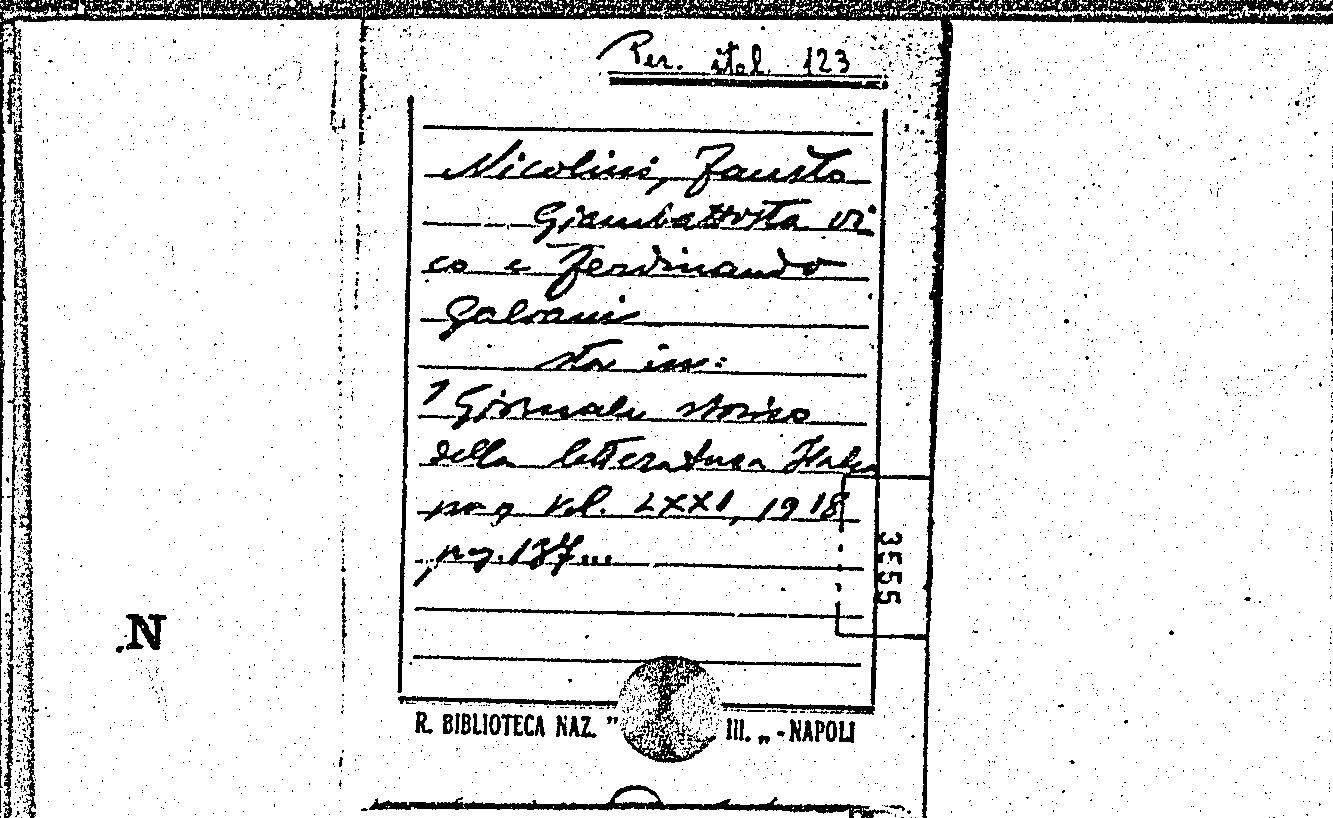 Per. ital. 123
Nicolini, Fausto
Giambattista Vi
co e Ferdinando
Galvani
sta in:
Giornale storico
della letteratura Italia
na, Vol. LXXI, 1918
pag. 137...
3555
N
R. BIBLIOTECA NAZ. " III. „ - NAPOLI